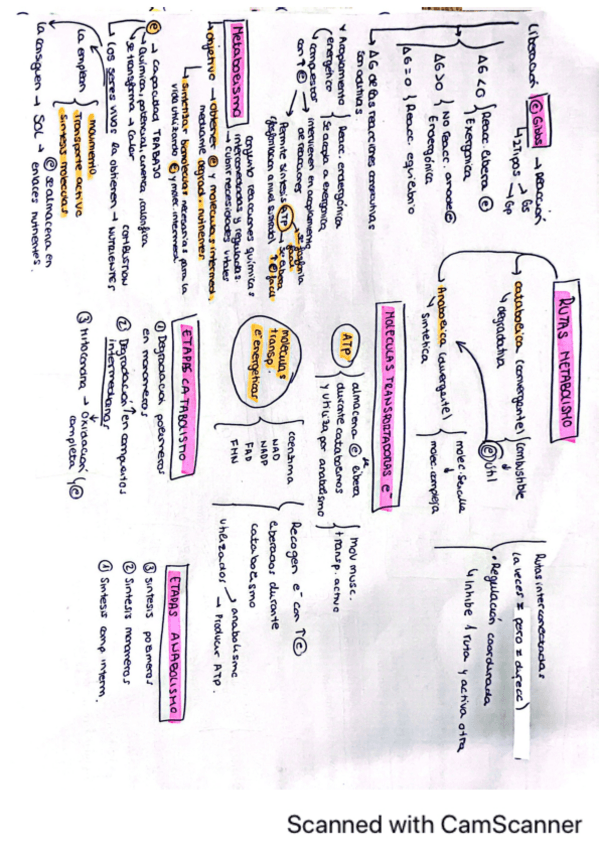 Metabolismo
conjunto reacciones químicas
interconectadas y reguladas.
→ cubrir necesidades vitales
→ objetivo → obtener ⓔ y moléculas intermed.
mediante degrad. nutrientes
→ sintetizar biomoléculas necesarias para la
vida utilizando ⓔ y molec. intermed.
ⓔ → capacidad TRABAJO
→ Química, potencial, cinética, calorífica
→ se transforma → calor
→ Los seres vivos la obtienen → NUTRIENTES
COMBUSTION
La emplean
movimiento
Transporte activo
Síntesis moléculas
La consiguen → SOL → ⓔ se almacena en
enlaces nutrientes.
Liberación ⓔ Gibbs → reacción
↳ 2 tipos
→ Gs
→ Gp
ΔG < 0 { Reacc. libera ⓔ
Exergónica
ΔG > 0 { NO reacc. 
Endergónica
ΔG = 0 { Reacc. equilibrio
→ ΔG de las reacciones consecutivas
son aditivas
Acoplamiento
energético
Reacc. endergónica
se acopla a exergónica
compuestos
con ↑ⓔ
intervienen en acoplamiento
de reacciones
Permite síntesis ATP
(fosforilación a nivel sustrato)
RUTAS METABOLISMO
→ catabólica (convergente) (combustible
↳ degradativa
ⓔ útil
→ Anabólica (divergente)
↳ sintética
molec. sencilla
↓
molec. compleja
Rutas interconectadas
(a veces = pero ≠ direcc)
• Regulación coordinada
↳ Inhibe 1 ruta y activa otra
MOLECULAS TRANSPORTADORAS e⁻
ATP
almacena ⓔ libera
durante catabolismos
y utiliza por anabolismo
mov musc.
transp. activo
moléculas
transp.
e⁻ energéticas
coenzima
NAD
NADP
FAD
FMN
Recogen e⁻ con ↑ⓔ
liberados durante
catabolismo
utilizados
→ anabolismo
→ Producir ATP.
ETAPAS CATABOLISMO
① Degradación polímeros
en monómeros
② Degradación en compuestos
intermediarios
③ Mitocondria → Oxidación
completa ⓔ
ETAPAS ANABOLISMO
③ síntesis polímeros
② síntesis monómeros
① síntesis comp interm.
Scanned with CamScanner